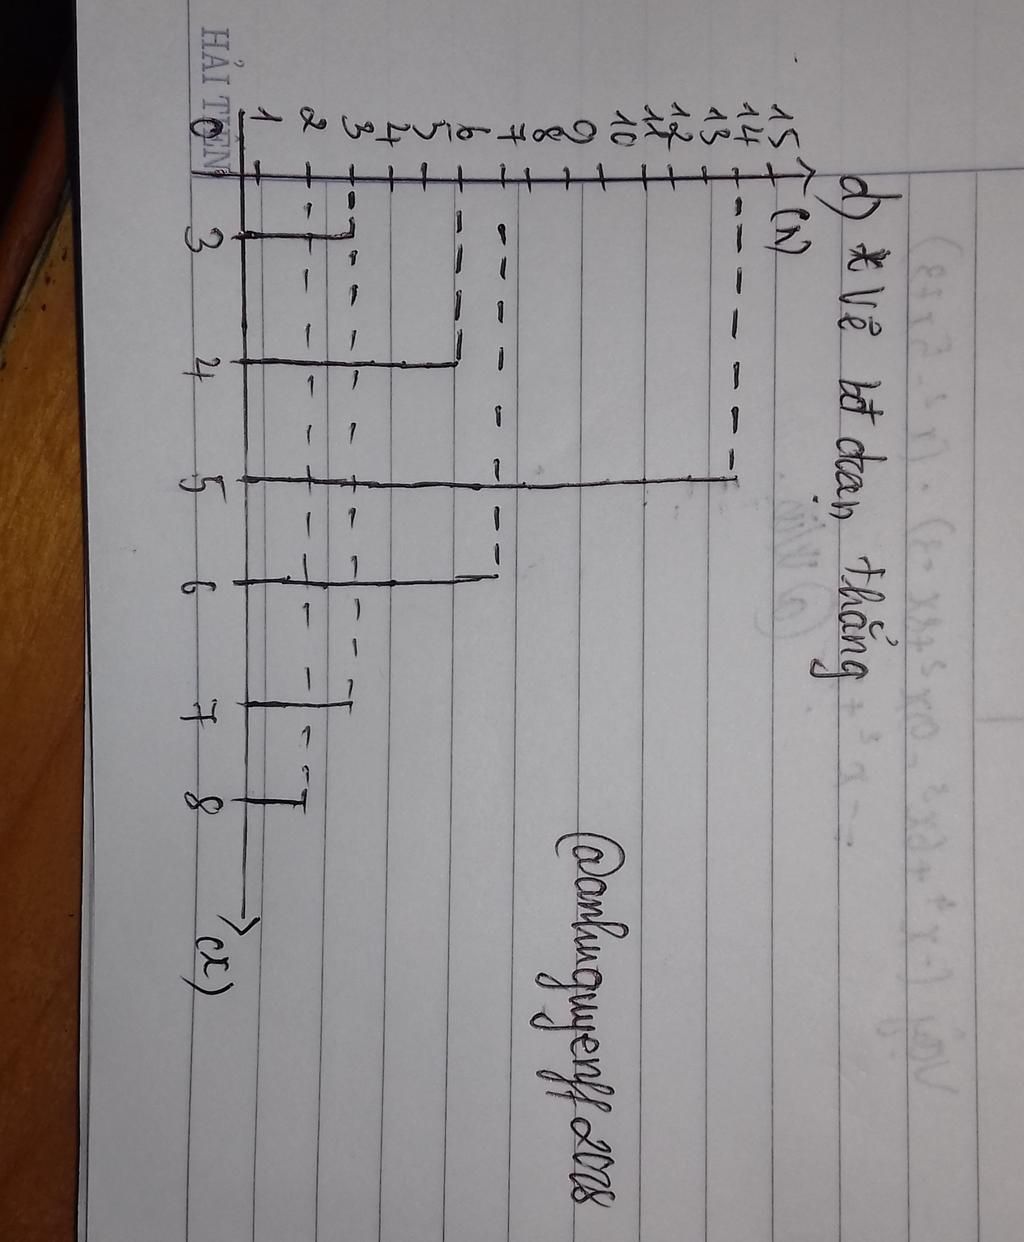 d) * Vẽ bđ đoạn thẳng
(N)
15
14
13
12
11
10
9
8
7
6
5
4
3
2
1
0
3 4 5 6 7 8 (x)
@anhnguyenff2008
HẢI TIẾN